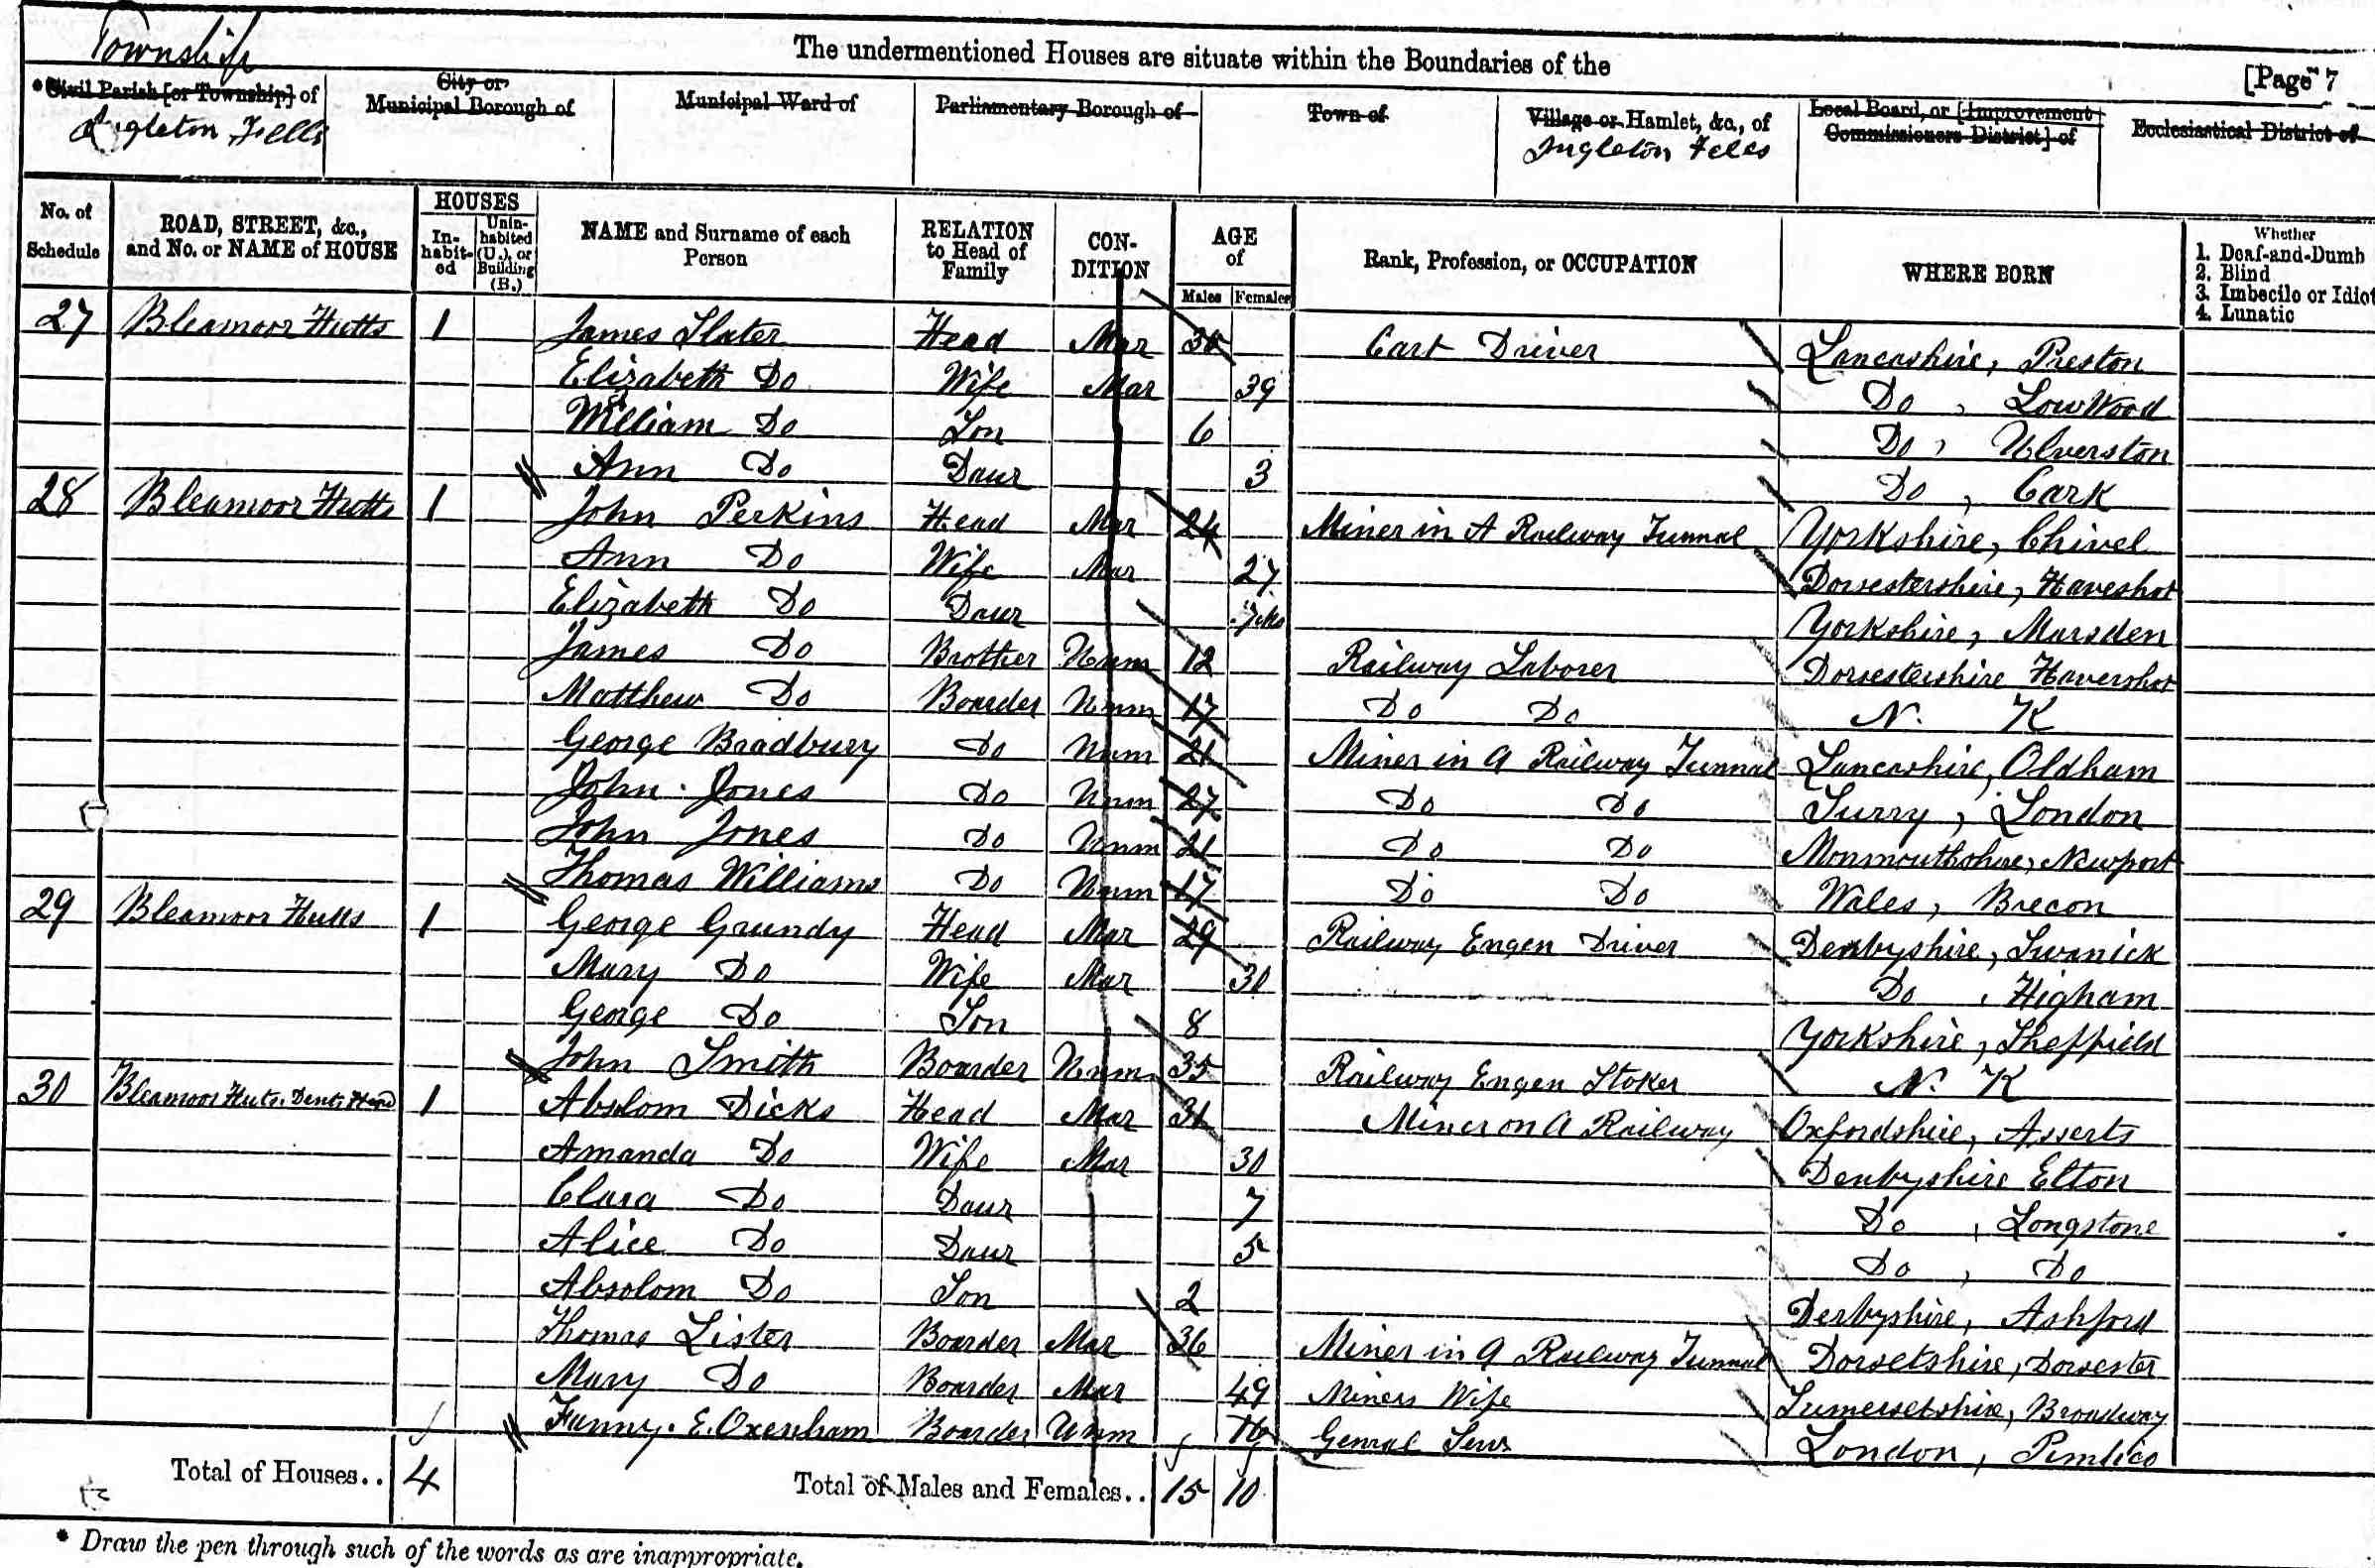 Township
The undermentioned Houses are situate within the Boundaries of the
[Page 7
*Civil Parish [or Township] of
City or Municipal Borough of
Municipal Ward of
Parliamentary Borough of
Town of
Village or Hamlet, &c., of
Local Board, or [Improvement Commissioners District] of
Ecclesiastical District of
Ingleton Fells
Ingleton Fells
No. of Schedule
ROAD, STREET, &c., and No. or NAME of HOUSE
HOUSES
Inhabited
Uninhabited (U.), or Building (B.)
NAME and Surname of each Person
RELATION to Head of Family
CONDITION
AGE of
Males Females
Rank, Profession, or OCCUPATION
WHERE BORN
Whether
1. Deaf-and-Dumb
2. Blind
3. Imbecile or Idiot
4. Lunatic
27 Bleamoor Hutts 1 James Slater Head Mar Cart Driver Lancashire, Preston
Elizabeth Do Wife Mar 39 Do, Low Wood
William Do Son 6 Do, Ulverston
Ann Do Daur 3 Do, Cark
28 Bleamoor Hutts 1 John Perkins Head Mar 24 Miner in A Railway Tunnal Yorkshire, Chivel
Ann Do Wife Mar 27 Dorsestershire, Haveshot
Elizabeth Do Daur 7 Mo Yorkshire, Marsden
James Do Brother Unm 12 Railway Laborer Dorsestershire Havershot
Matthew Do Boarder Unm 17 Do Do N. K
George Bradbury Do Unm 21 Miner in A Railway Tunnal Lancashire, Oldham
John Jones Do Unm 27 Do Do Surry, London
John Jones Do Unm 21 Do Do Monmouthshire, Newport
Thomas Williams Do Unm 17 Do Do Wales, Brecon
29 Bleamoor Hutts 1 George Grundy Head Mar 29 Railway Engen Driver Denbyshire, Swanick
Mary Do Wife Mar 30 Do, Higham
George Do Son 8 Yorkshire, Sheffield
John Smith Boarder Unm 35 Railway Engen Stoker N. K
30 Bleamoor Huts. Dent Head 1 Absolom Dicks Head Mar 31 Miner on A Railway Oxfordshire, Asserts
Amanda Do Wife Mar 30 Denbyshire Elton
Clara Do Daur 7 Do, Longstone
Alice Do Daur 5 Do, Do
Absolom Do Son 2 Derbyshire, Ashford
Thomas Lister Boarder Mar 36 Miner in A Railway Tunnal Dorsetshire, Dorsester
Mary Do Boarder Mar 49 Miners Wife Sumersetshire, Broadway
Fanny. E. Oxenham Boarder Unm 16 Genral Serv London, Pimlico
Total of Houses.. 4 Total of Males and Females.. 15 10
* Draw the pen through such of the words as are inappropriate.